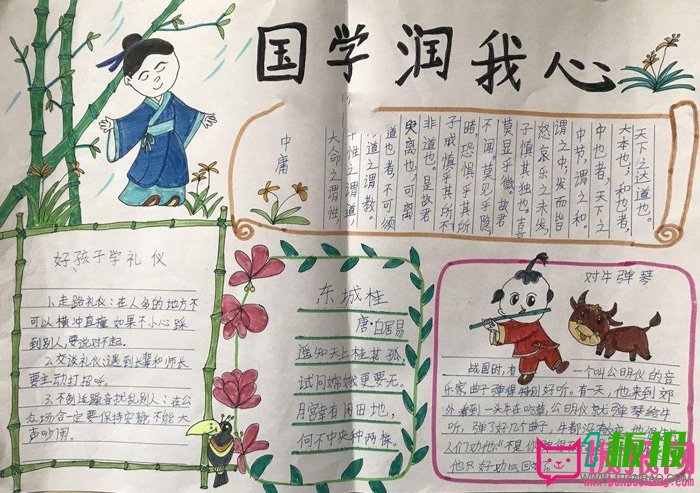 国学润我心
中庸
大命之谓性
性之谓道
道之谓教。
道也者,不可须
离也,可离
非道也。是故君
子戒慎乎其所不
睹,恐惧乎其所
不闻。莫见乎隐,
莫显乎微。故君
子慎其独也。喜
怒哀乐之未发
谓之中,发而皆
中节,谓之和。
中也者,天下之
大本也,和也者,
天下之达道也。
好孩子学礼仪
1.走路礼仪:在人多的地方不
可以横冲直撞如果不小心踩
到别人,要说对不起。
2.交谈礼仪:遇到长辈和师长
要主动打招呼。
3.不制造噪音扰乱别人:在公
众场合一定要保持安静,不能大
声吵闹。
东城桂
唐·白居易
遥知天上桂其孤,
试问嫦娥更要无,
月宫幸有闲田地,
何不中央种两株。
对牛弹琴
战国时,有一个叫公明仪的音
乐家曲子弹得特别好听。有一天,他来到郊
外看到一头牛在吃草,公明仪就弹琴给牛
听,弹了好几个曲子,牛都没
人们劝他:"不是你
他只好
板报